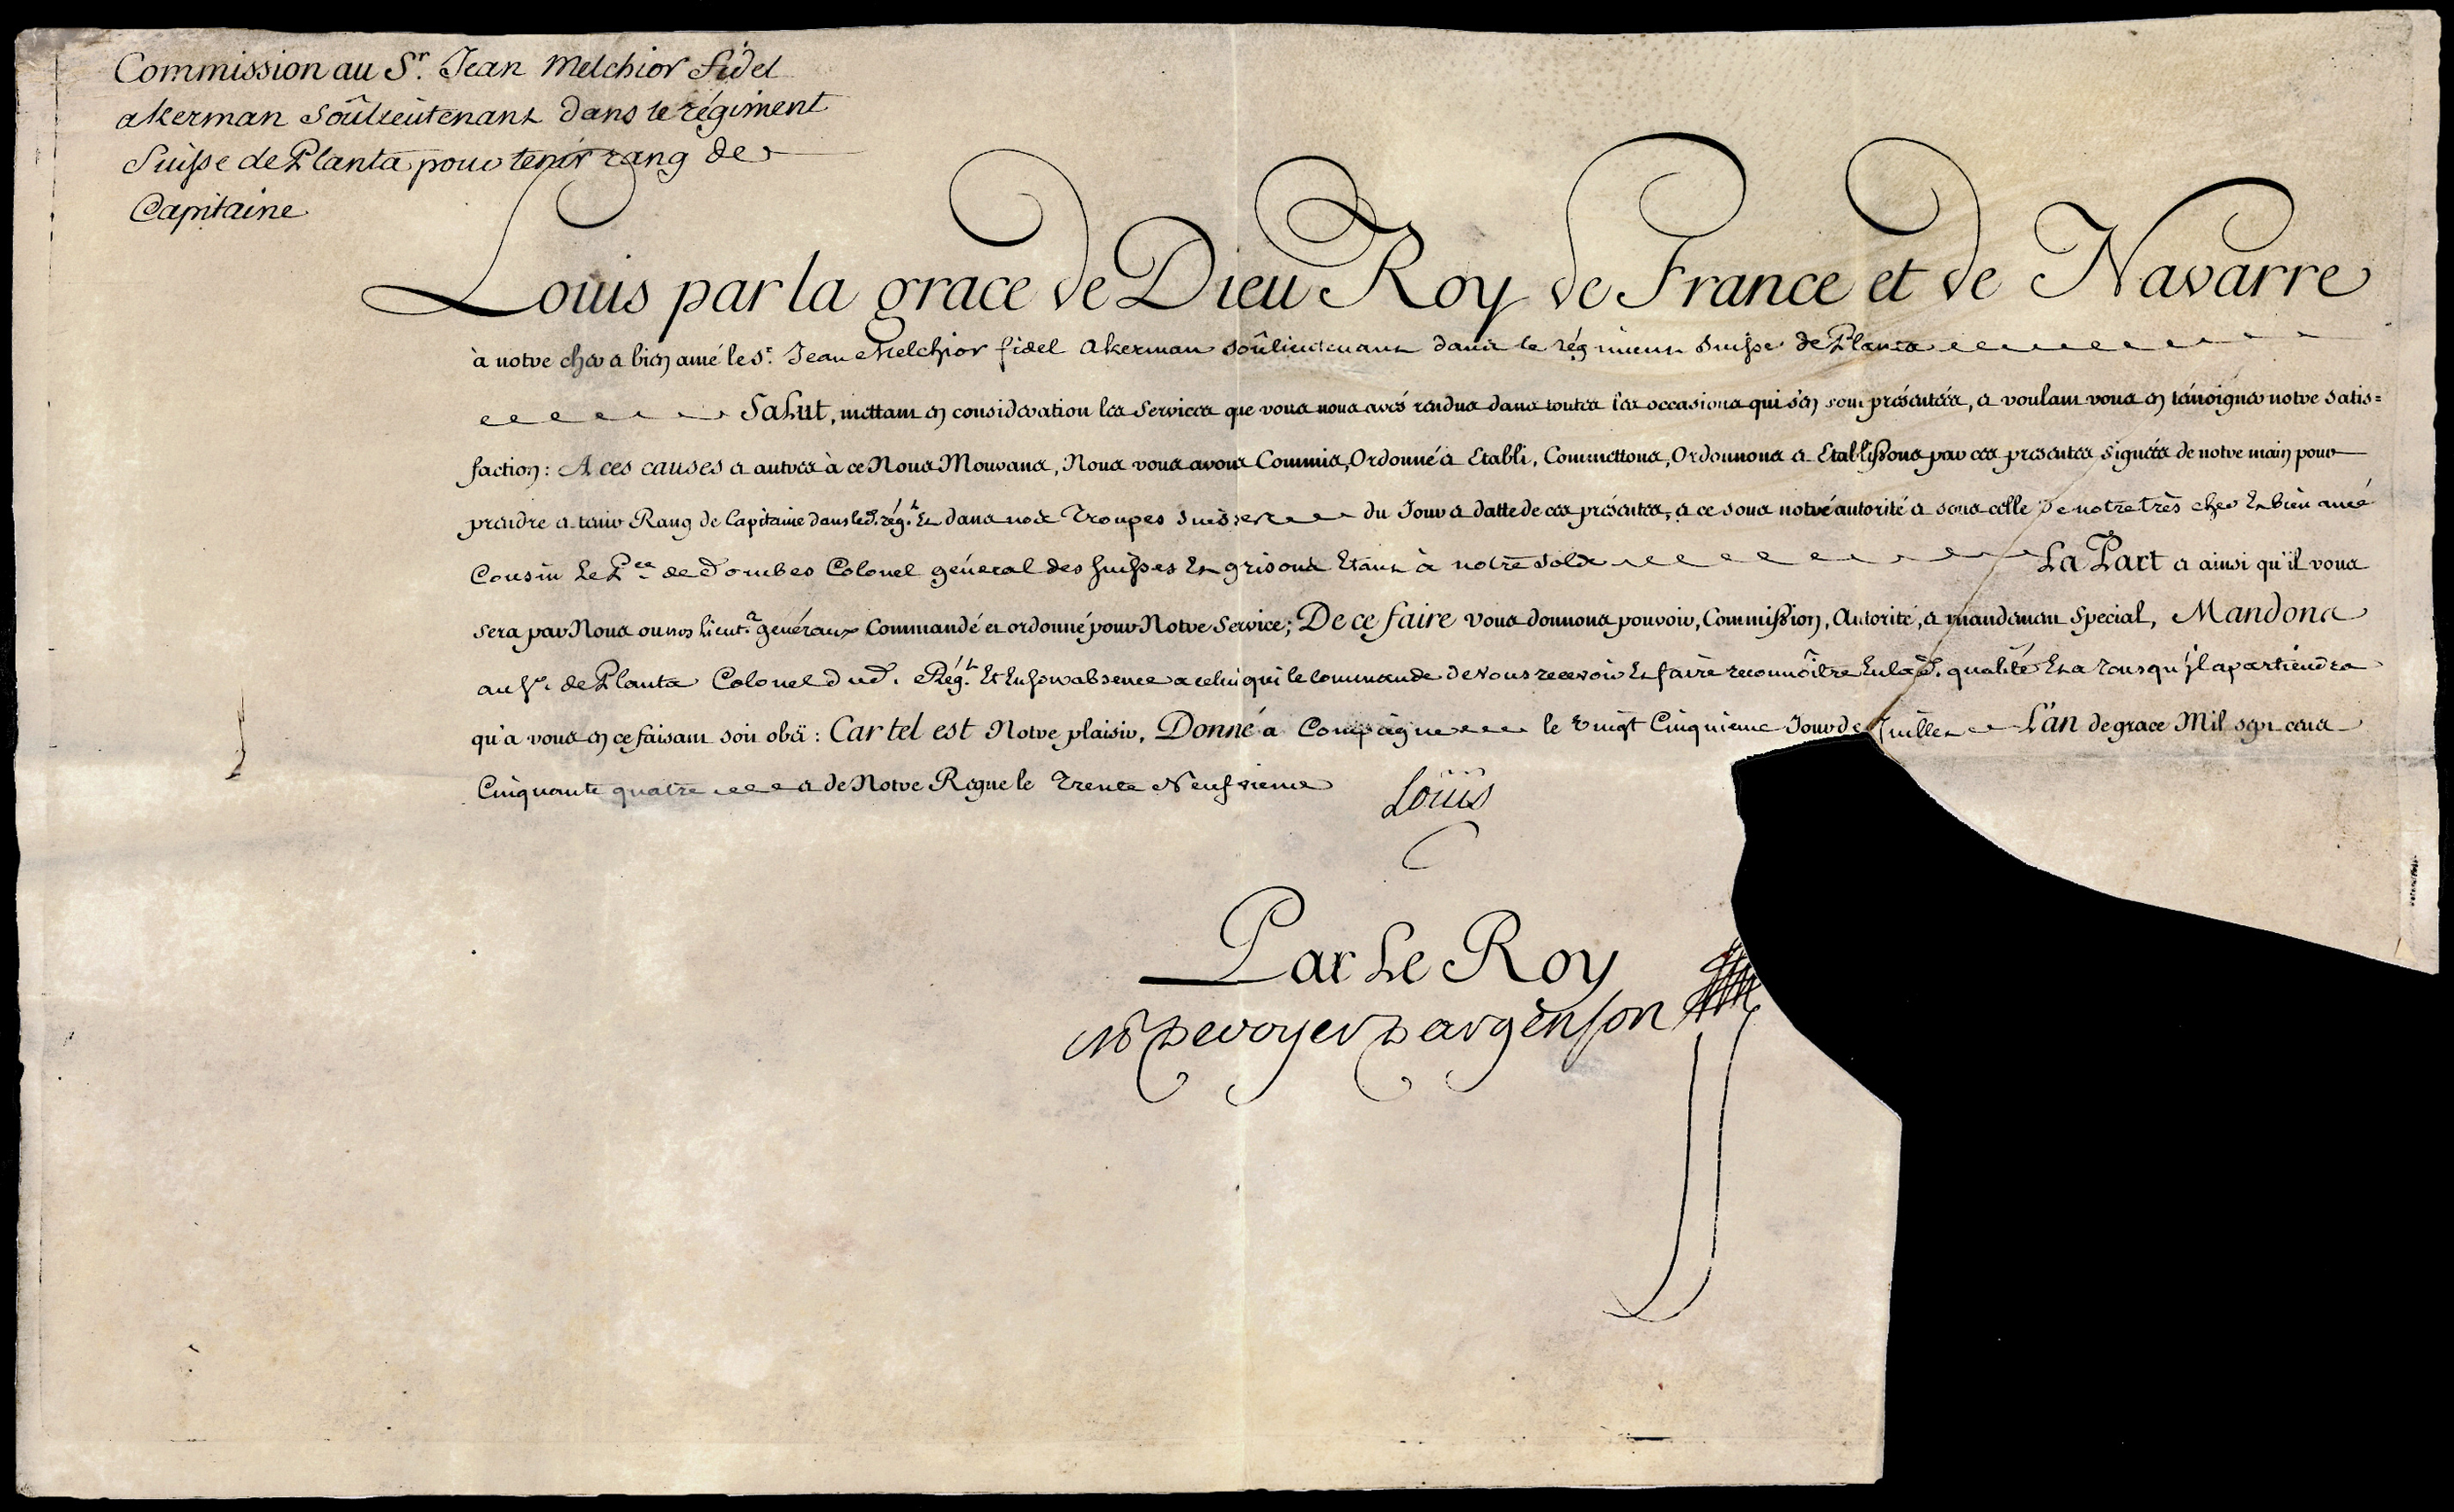 Commission au Sr. Jean Melchior fidel
akerman soûlieutenant dans le régiment
Suisse de Planta pour tenir rang de
Capitaine
Louis par la grace de Dieu Roy de France et de Navarre
à notre cher et bien amé le Sr. Jean Melchior fidel akerman soûlieutenant dans le régiment Suisse de Planta
Salut, mettant en consideration les Services que vous nous avés rendus dans toutes les occasions qui s'en sont présentées, et voulant vous en témoigner notre satis=
faction: A ces causes et autres à ce Nous Mouvans, Nous vous avons Commis, Ordonné et Etabli, Commettons, Ordonnons et Etablissons par ces presentes signées de notre main pour
prendre et tenir Rang de Capitaine dans led. régt. Et dans nos Troupes Suisses du Jour et datte de ces présentes, et ce sous notre autorité et sous celle de notre très cher Et bien amé
Cousin Le Pce. de Dombes Colonel général des Suisses Et grisons Etant à notre solde La Part et ainsi qu'il vous
sera par Nous ou nos Lieuts. généraux Commandé et ordonné pour Notre Service; De ce faire vous donnons pouvoir, Commission, Autorité, et mandement Special, Mandons
au Sr. de Planta Colonel dud. Régt. Et En son absence a celui qui le commande de Vous recevoir Et faire reconnoître En lad. qualité Et a tous qu'il apartiendra
qu'a vous en ce faisant soit obëi: Car tel est Notre plaisir, Donné à Compiegne le vingt Cinquieme Jour de Juillet L'an de grace Mil sept cens
Cinquante quatre et de Notre Regne le Trente Neufvieme Louis
Par Le Roy
M P Devoyer Dargenson